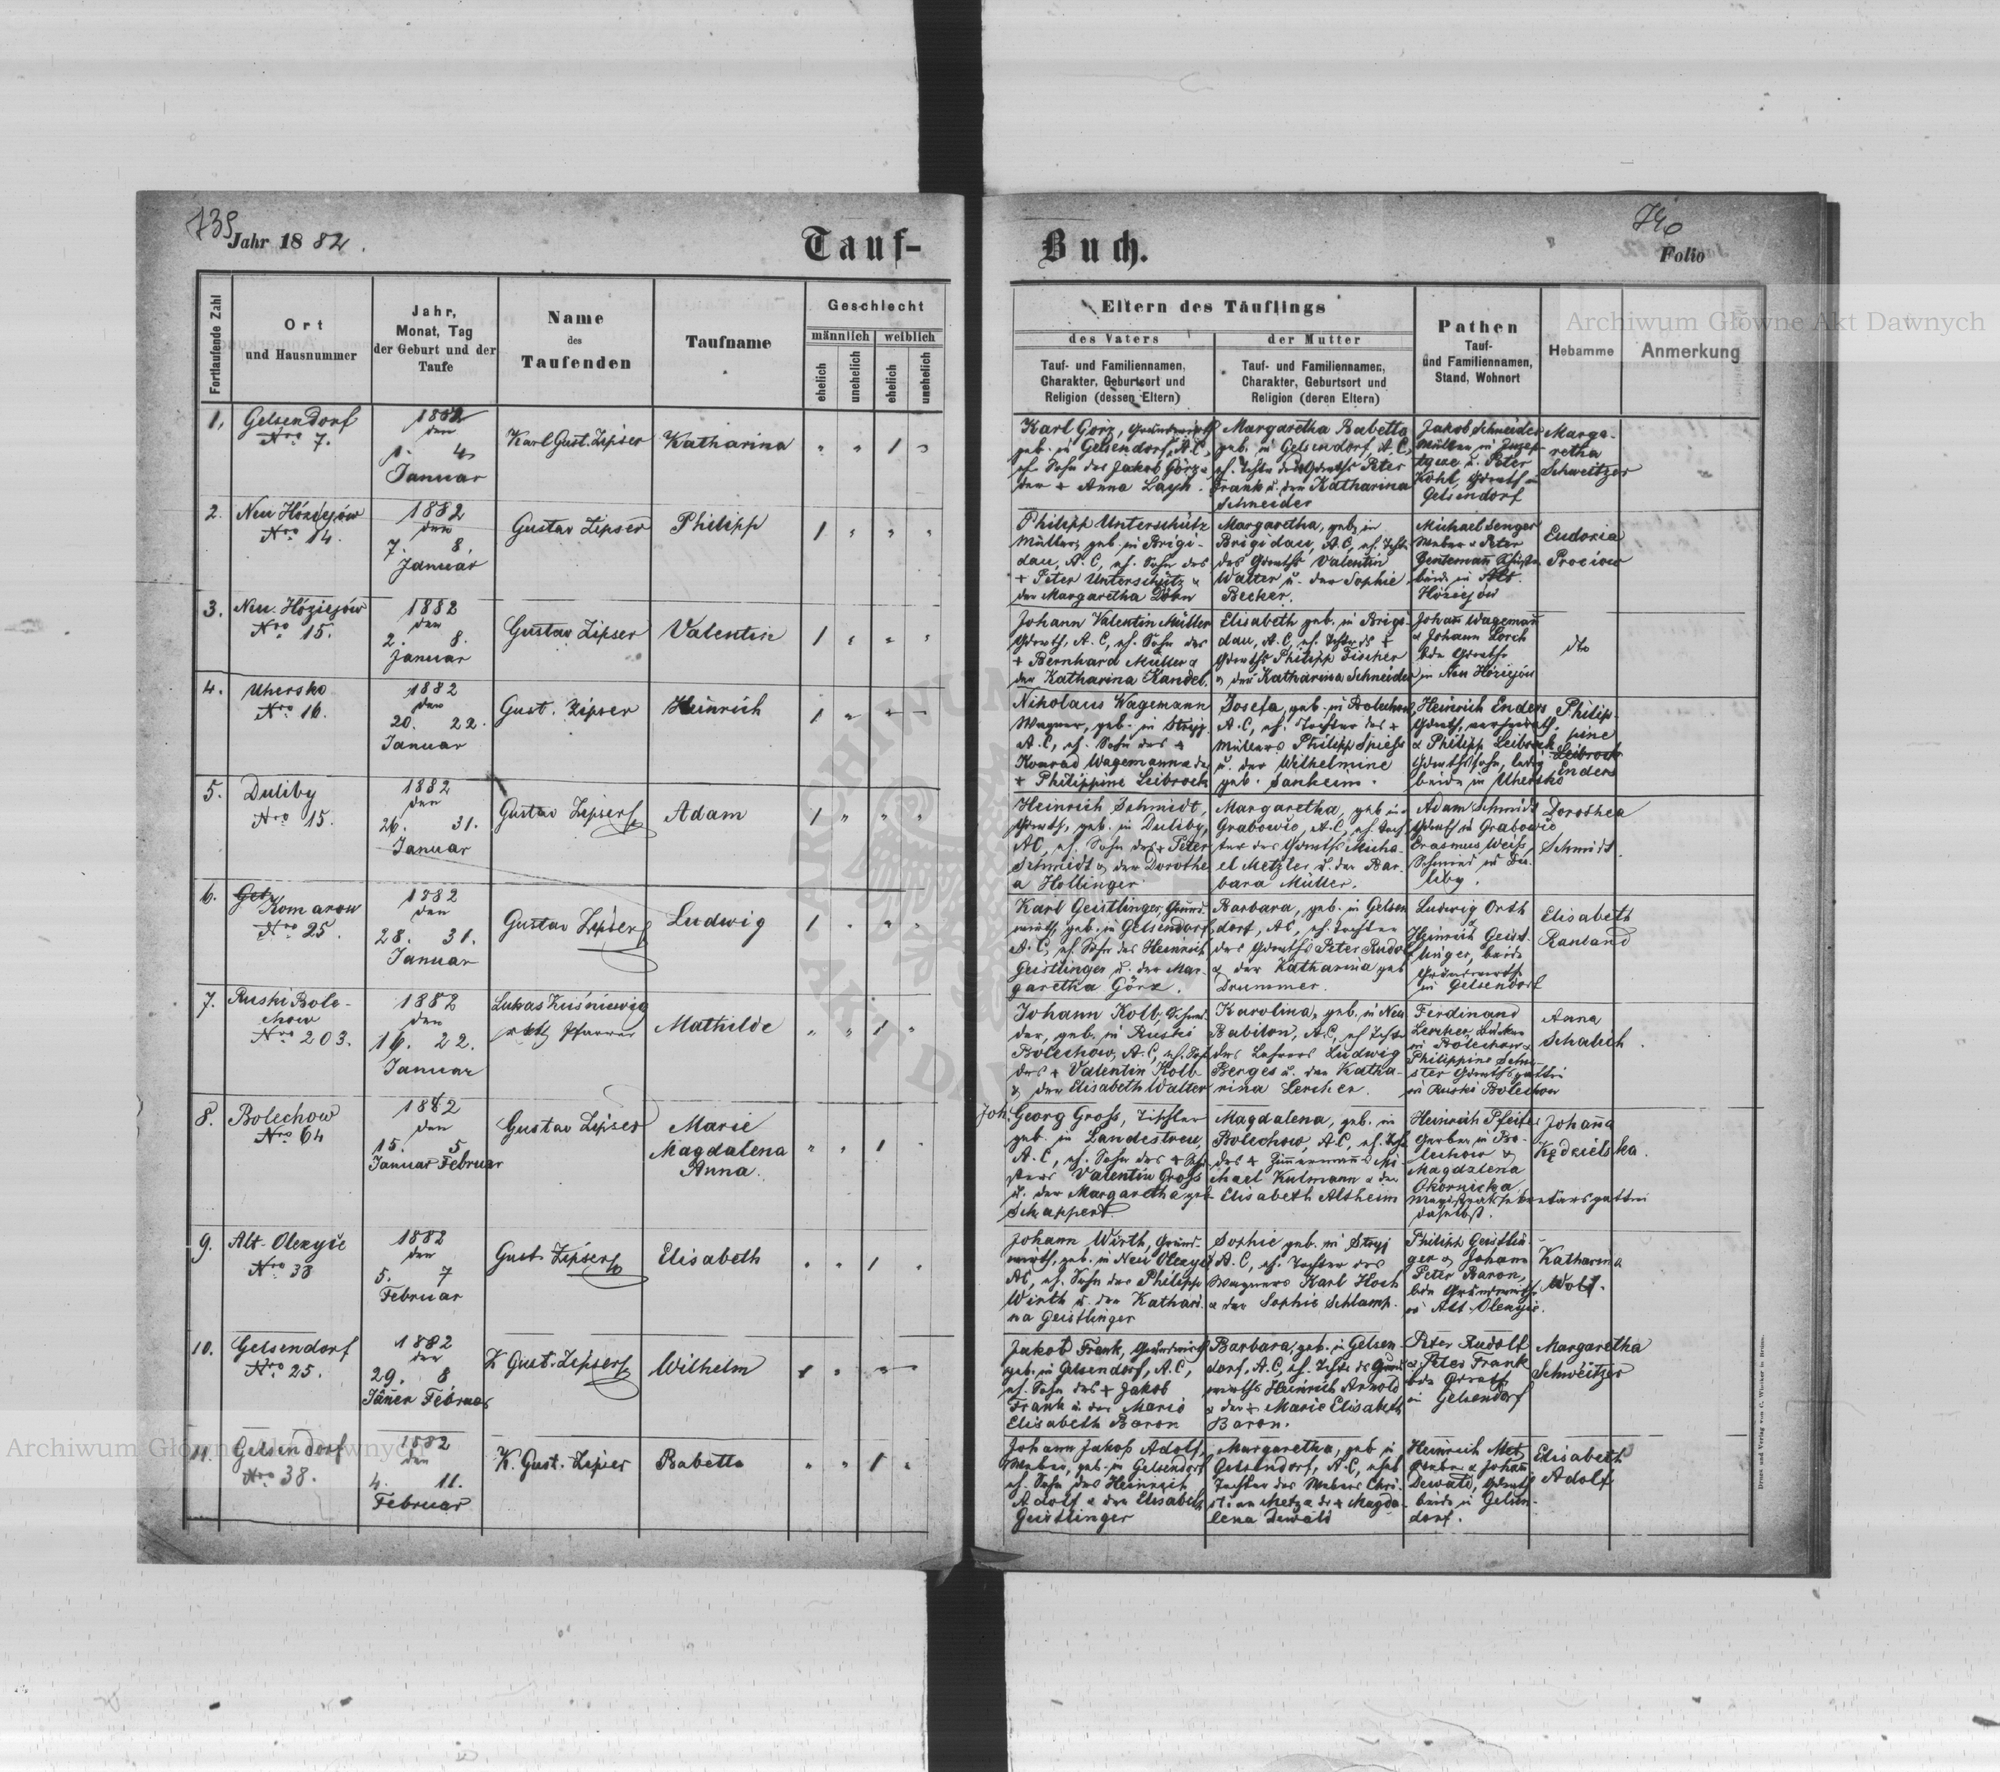 739
Jahr 1882.
Tauf-
Buch.
740
Folio
Archiwum Główne Akt Dawnych
Fortlaufende Zahl
Ort
und Hausnummer
Jahr,
Monat, Tag
der Geburt und der
Taufe
Name
des
Taufenden
Taufname
Geschlecht
männlich
weiblich
ehelich
unehelich
ehelich
unehelich
Eltern des Täuflings
des Vaters
Tauf- und Familiennamen,
Charakter, Geburtsort und
Religion (dessen Eltern)
der Mutter
Tauf- und Familiennamen,
Charakter, Geburtsort und
Religion (deren Eltern)
Pathen
Tauf-
und Familiennamen,
Stand, Wohnort
Hebamme
Anmerkung
1.
Gelsendorf
Nro 7.
1882
den
1. 4.
Januar
Karl Gust. Zipser
Katharina
Karl Görz, Grundwirth
geb. in Gelsendorf, A.C,
eh. Sohn des Jakob Görz u
der + Anna Layh.
Margaretha Babetta
geb. in Gelsendorf, A.C,
eh. Tochter des Grwths Peter
Frank u. der Katharina
Schneider
Jakob Schneider
Müller in
u. Peter
Kohl, Grwth in
Gelsendorf
Marga-
retha
Schweitzer
2.
Neu Hóziejów
Nro 14.
1882
den
7. 8.
Januar
Gustav Zipser
Philipp
Philipp Unterschütz
Müller, geb. in Brigi-
dau, A.C, eh. Sohn des
+ Peter Unterschütz u
der Margaretha Dörn
Margaretha, geb. in
Brigidau, A.C, eh. Tocht.
des Grwths Valentin
Walter u. der Sophie
Becker.
Michael Senger
Weber u Peter
beide in Alt
Hóziejów
Eudoxia
Prociow
3.
Neu. Hóziejów
Nro 15.
1882
den
2. 8.
Januar
Gustav Zipser
Valentin
Johann Valentin Müller
Grwth, A.C, eh. Sohn des
+ Bernhard Müller u
der Katharina Kandel.
Elisabeth geb. in Brigi-
dau, A.C, eh. Tochter des +
Grwths Philipp Fischer
u der Katharina Schneider
Johann Wagemann
u Johann Lorch
bde Grwthe
in Neu Hóziejów
dto
4.
Uhersko
Nro 16.
1882
den
20. 22.
Januar
Gust. Zipser
Heinrich
Nikolaus Wagemann
Wagner, geb. in Stryj
A.C, eh. Sohn des +
Konrad Wagemann u der
+ Philippine Leibrock
Josefa, geb. in Bolechow
A.C, eh. Tochter des +
Müllers Philipp Spiess
u. der Wilhelmine
geb. Sanheim.
Heinrich Enders
Grwth, verheirath.
u Philipp Leibrock
Grwthssohn, ledig
beide in Uhersko
Philip-
pine
Leibrock
Enders
5.
Duliby
Nro 15.
1882
den
26. 31.
Januar
Gustav Zipser
Adam
Heinrich Schmidt,
Grwth, geb. in Duliby,
AC, eh. Sohn des + Peter
Schmidt u der Dorothe
a Hollinger
Margaretha, geb in
Grabowic, A.C, eh. Toch
ter des Grwths Micha-
el Metzler u. der Bar-
bara Müller.
Adam Schmidt
Grwth in Grabowic
Erasmus Weiss,
Schmied in Du-
liby.
Dorothea
Schmidt.
6.
Komarow
Nro 25.
1882
den
28. 31.
Januar
Gustav Zipser
Ludwig
Karl Geistlinger, Grund-
wirth, geb. in Gelsendorf,
A.C, eh. Sohn des Heinrich
Geistlinger u. der Mar-
garetha Görz.
Barbara, geb. in Gelsen
dorf, AC, eh. Tochter
des Grwths Peter Rudolf
u der Katharina geb
Drummer.
Ludwig Orth
Heinrich Geist-
linger, beide
Grundwirthe
in Gelsendorf
Elisabeth
Rauland
7.
Ruski Bole-
chow
Nro 203.
1882
den
16. 22.
Januar
Pfarrer
Mathilde
Johann Kolb,
geb. in Ruski
Bolechow, A.C, eh. Sohn
des + Valentin Kolb
u der Elisabeth Walter
Karolina, geb. in Neu
Babilon, A.C, eh Tocht
des Lehrers Ludwig
Berges u. der Katha-
rina Lercher.
Ferdinand
Lercher,
in Bolechow u
Philippine Schu-
ster Grwthsgattin
in Ruski Bolechow
Anna
Schalich.
8.
Bolechow
Nro 64
1882
den
15. 5
Januar Februar
Gustav Zipser
Marie
Magdalena
Anna.
Joh. Georg Gross, Tischler
geb. in Landestreu,
A.C, eh. Sohn des +
Valentin Gross
u. der Margaretha geb
Schappert
Magdalena, geb. in
Bolechow, A.C, eh. Tocht
des + Zimmermanns Mi-
chael Kulmann u der
Elisabeth Altheim
Heinrich Pfeifer
Gerber in Bo-
lechow u
Magdalena
Okornicka
Magistratssekretärsgattin
daselbst.
Johanna
Kędzielska.
9.
Alt-Olexyce
Nro 38
1882
den
5. 7
Februar
Gust. Zipser
Elisabeth
Johann Wirth, Grund-
wirth, geb. in Neu Olexyce
AC, eh. Sohn des Philipp
Wirth u. der Kathari-
na Geistlinger
Sophie geb. in Stryj
A.C, eh. Tochter des
Wagners Karl Hoch
u der Sophie Schlamp.
Philipp Geistlin-
ger u Johann
Peter Baron,
bde Grundwirthe
in Alt-Olexyce.
Katharina
Wolf.
10.
Gelsendorf
Nro 25.
1882
den
29. 8
Jänner Februar
K Gust. Zipser
Wilhelm
Jakob Frank, Grundwirth
geb. in Gelsendorf, A.C,
eh. Sohn des + Jakob
Frank u. der Marie
Elisabeth Baron
Barbara, geb. in Gelsen
dorf, A.C, eh. Tochter des Grund
wirths Heinrich Arnold
u der + Marie Elisabeth
Baron.
Peter Rudolf
u Peter Frank
bde Grwthe
in Gelsendorf
Margaretha
Schweitzer
11.
Gelsendorf
Nro 38.
1882
den
4. 11.
Februar
K. Gust. Zipser
Babetta
Johann Jakob Adolf,
Weber, geb. in Gelsendorf
eh. Sohn des Heinrich
Adolf u der Elisabeth
Geistlinger
Margaretha, geb in
Gelsendorf, A.C, ehel
Tochter des Webers Chri-
stian Metz u der + Magda-
lena Dewald
Heinrich Metz
Weber u Johann
Dewald, Grwth
beide in Gelsen-
dorf.
Elisabeth
Adolf
Archiwum Główne Akt Dawnych